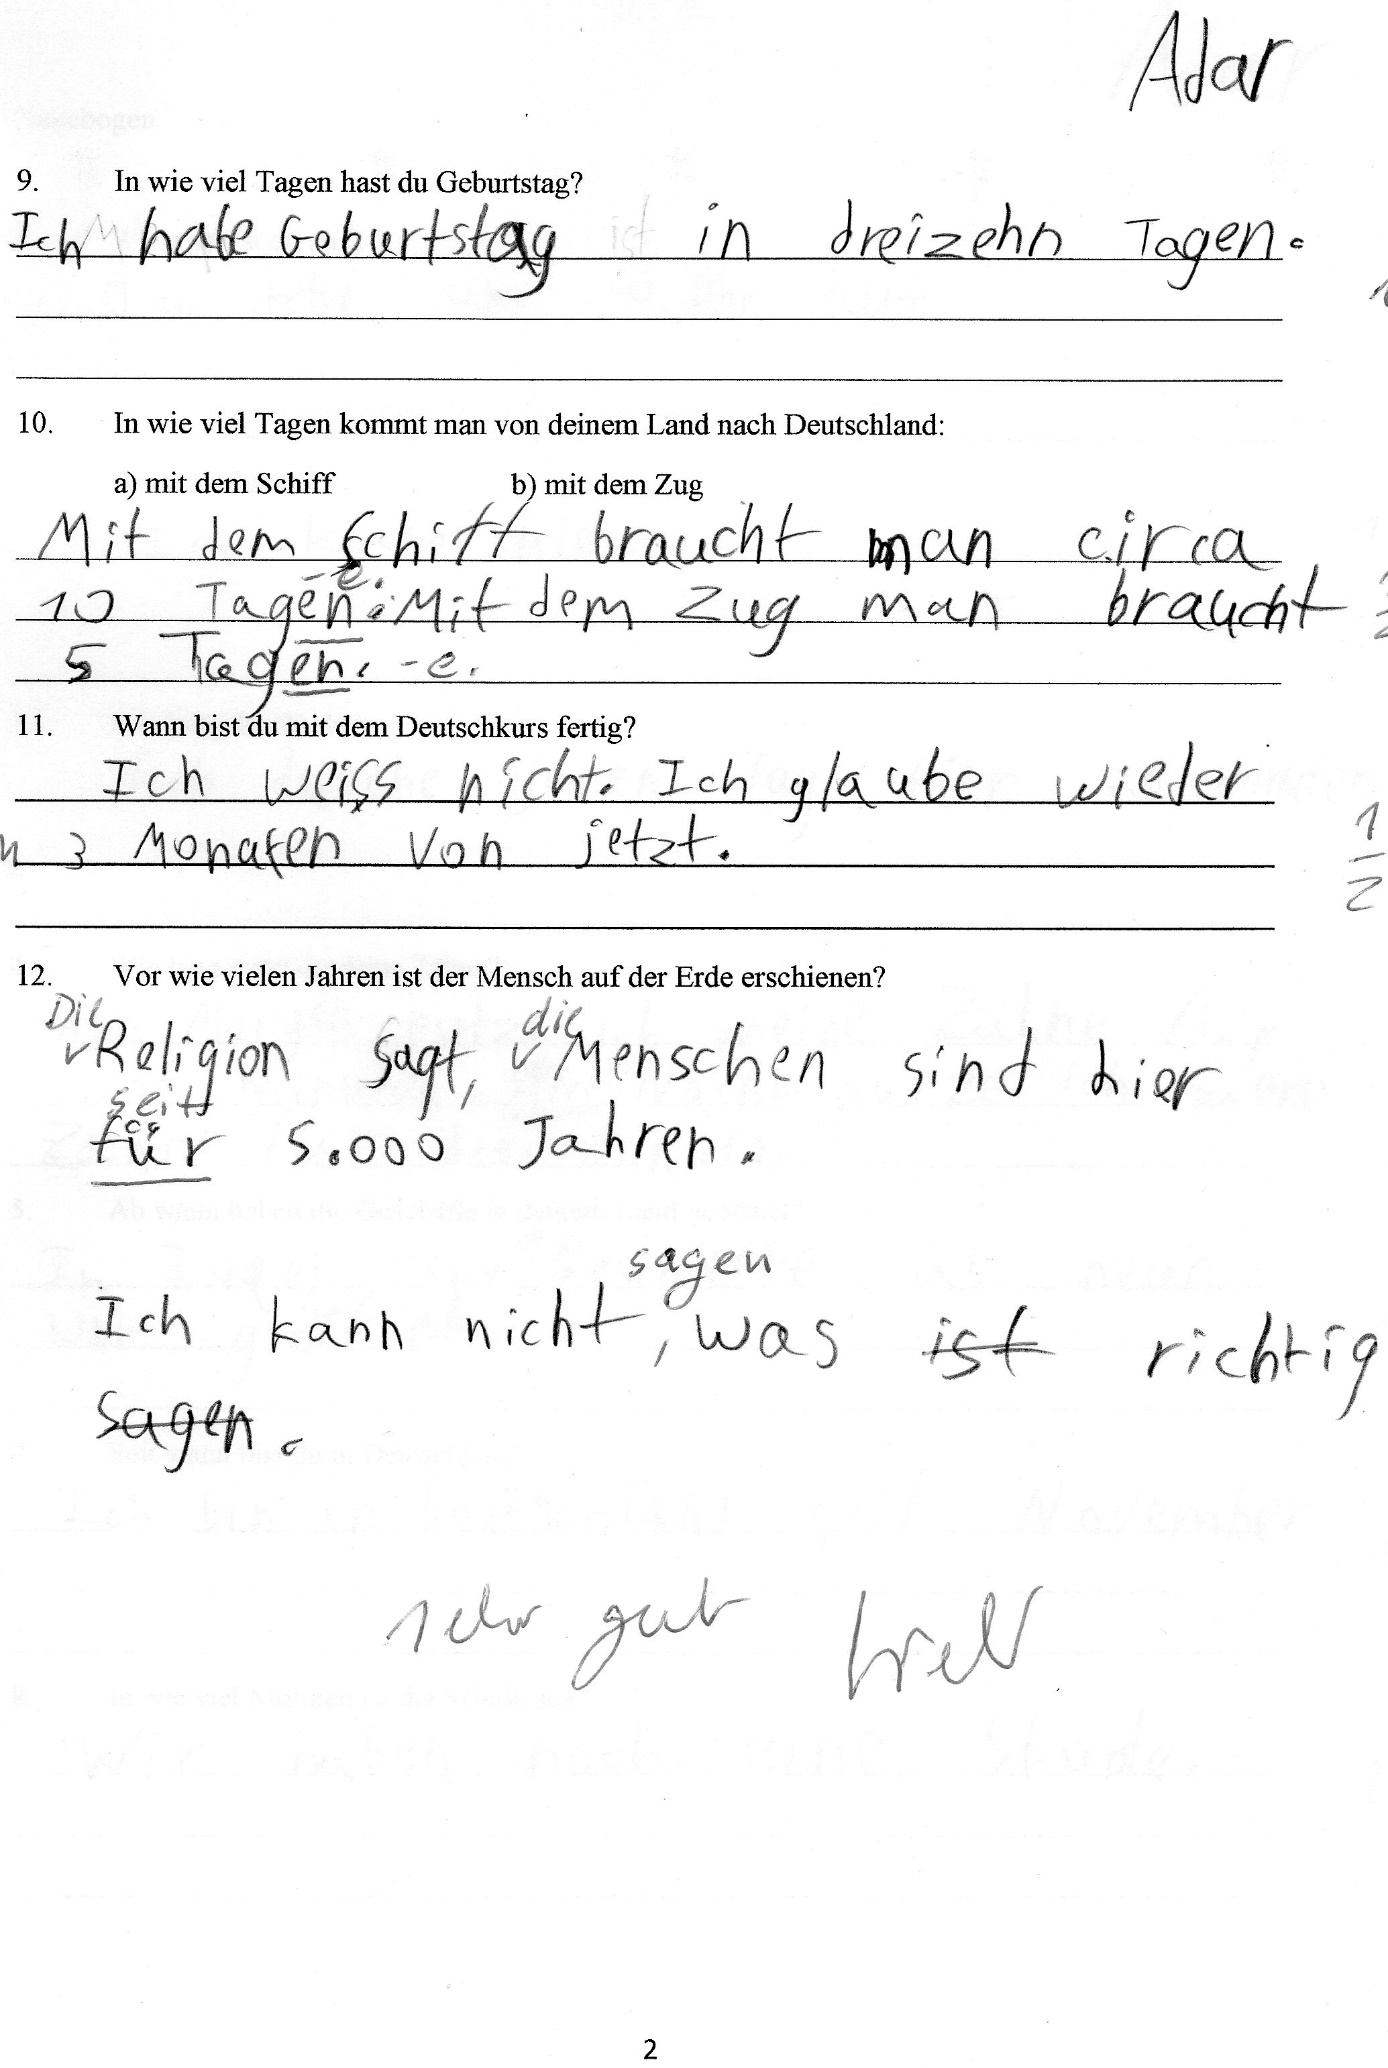 Adar
9. In wie viel Tagen hast du Geburtstag?
Ich habe Geburtstag ist in dreizehn Tagen.
10. In wie viel Tagen kommt man von deinem Land nach Deutschland:
a) mit dem Schiff b) mit dem Zug
Mit dem Schiff braucht man circa
-e.
10 Tagen. Mit dem Zug man braucht
5 Tagen. -e.
11. Wann bist du mit dem Deutschkurs fertig?
Ich weiss nicht. Ich glaube wieder
3 Monaten von jetzt.
1
2
12. Vor wie vielen Jahren ist der Mensch auf der Erde erschienen?
Die die
Religion sagt, Menschen sind hier
seit
für 5.000 Jahren.
sagen
Ich kann nicht, was ist richtig
sagen.
sehr gut
2